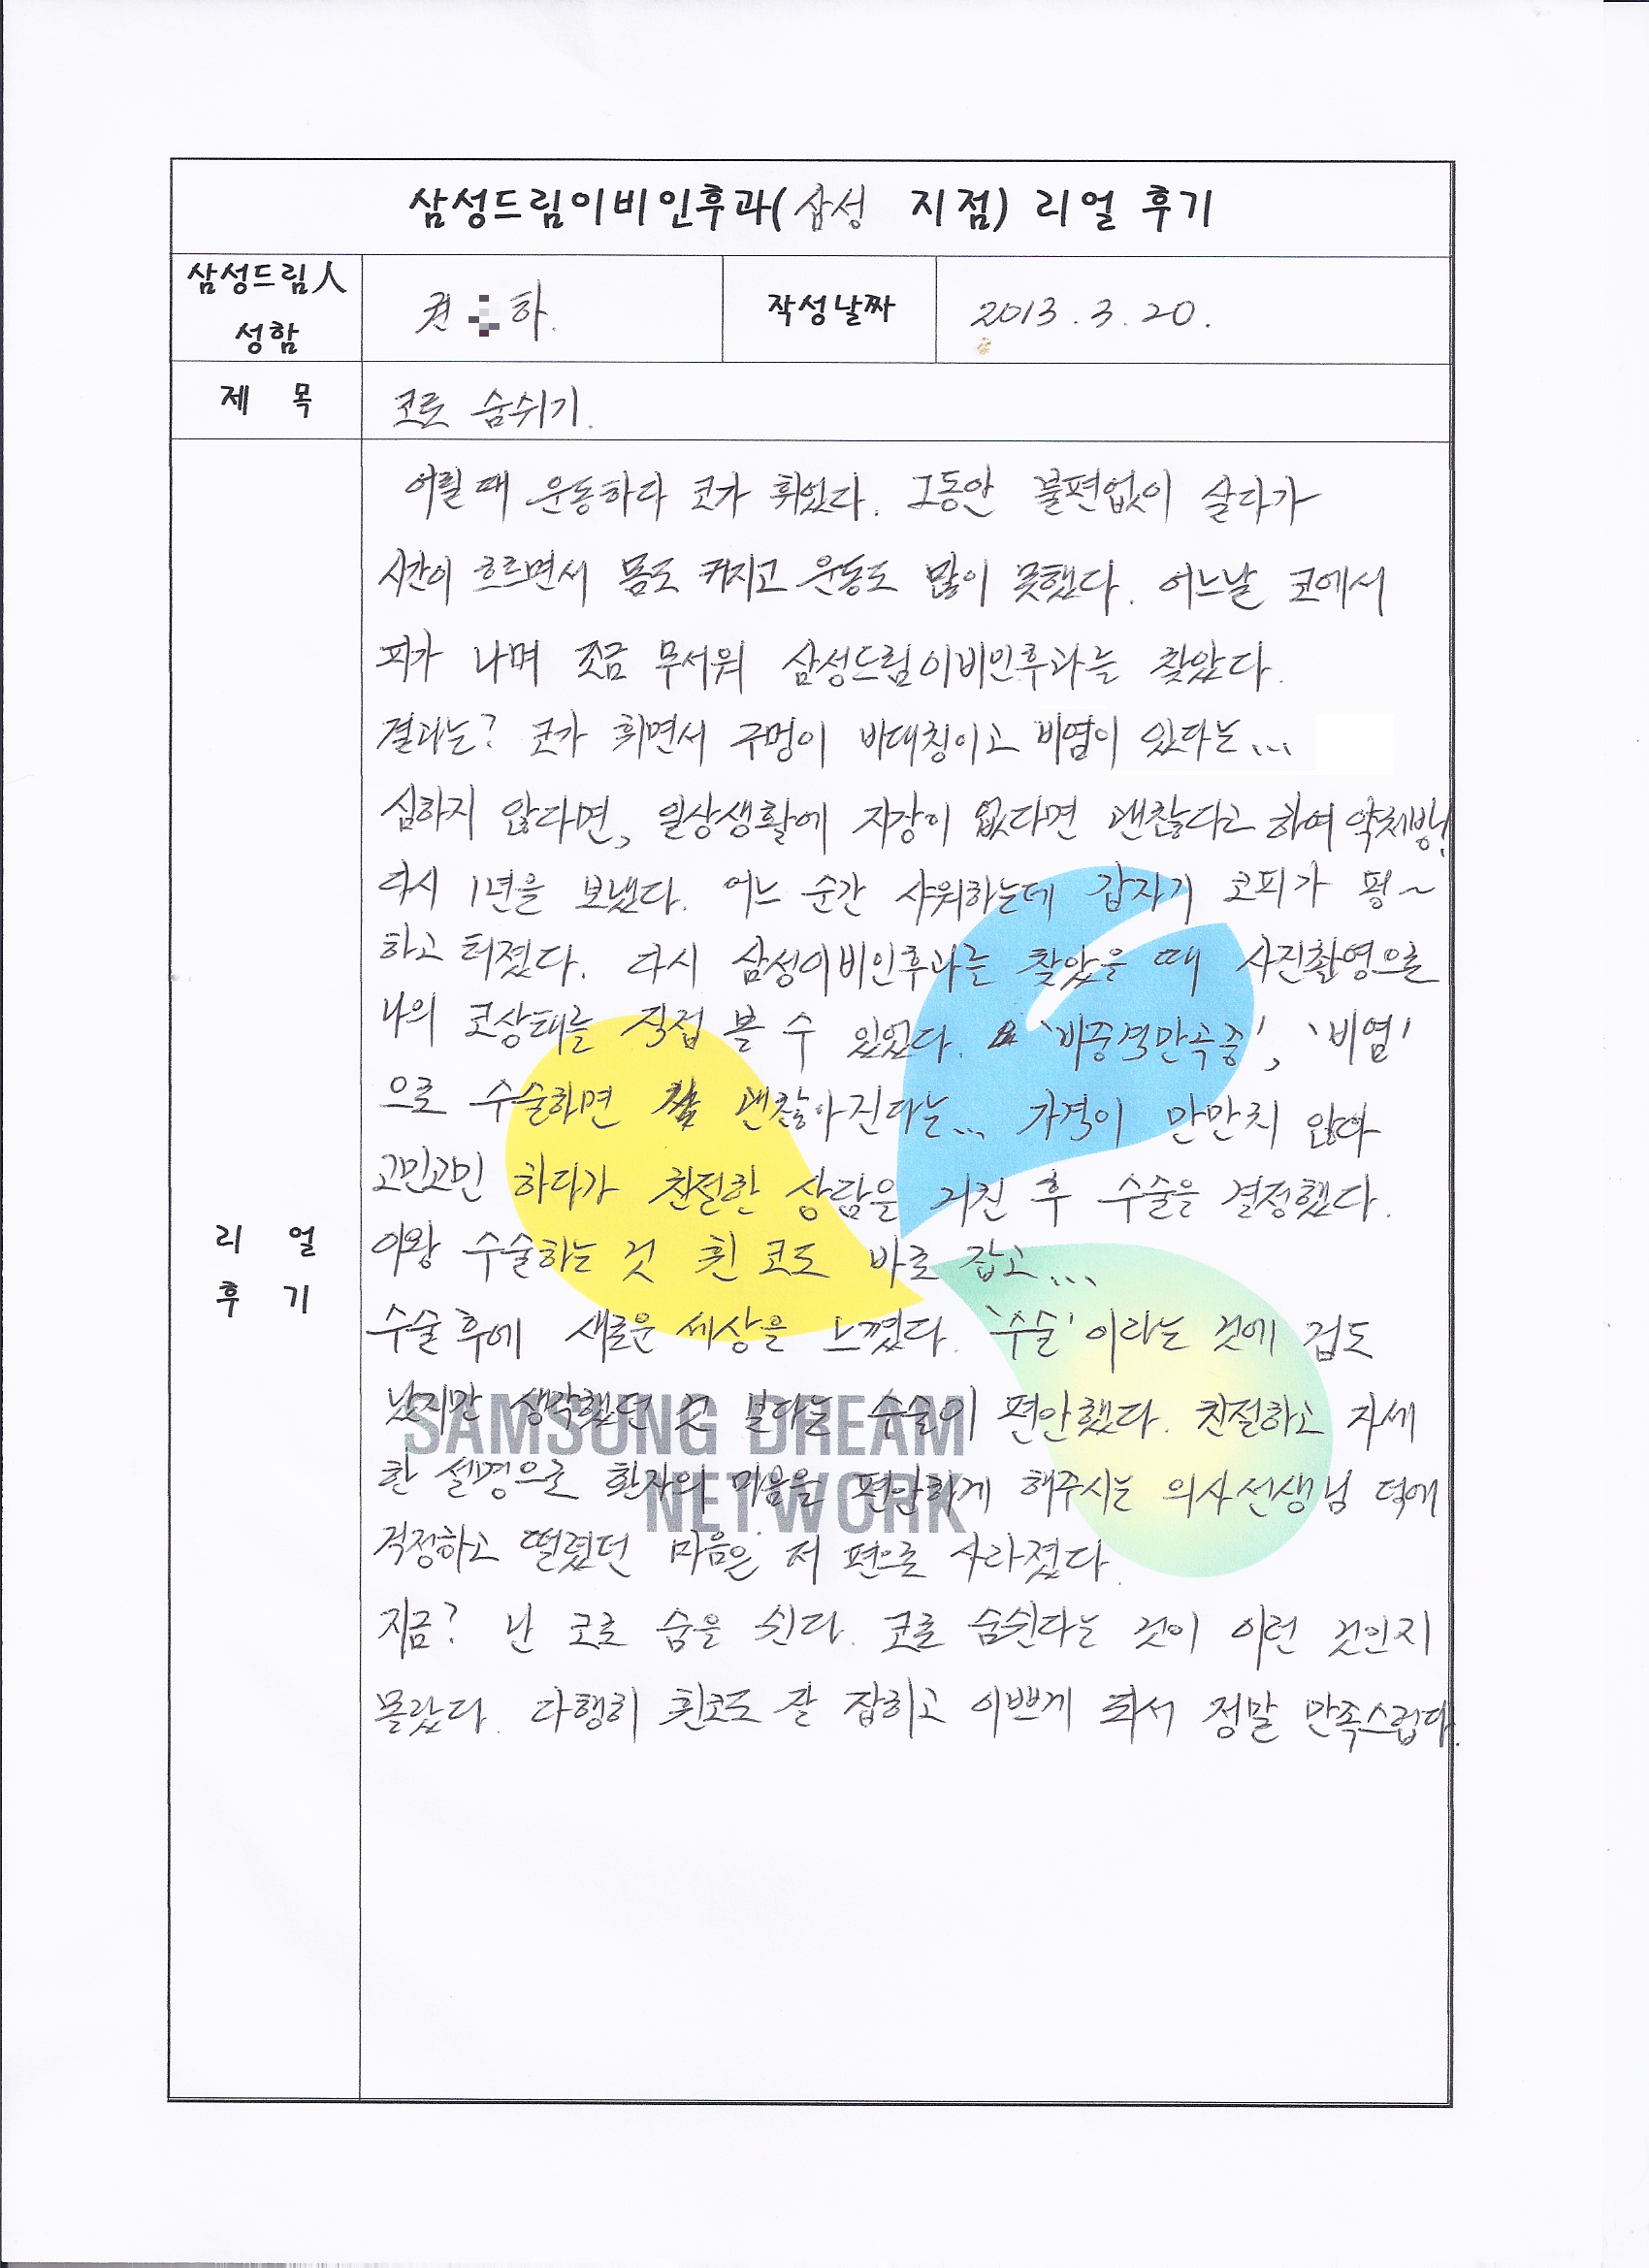 삼성드림이비인후과(삼성 지점) 리얼 후기
삼성드림人
성함
권 하.
작성날짜
2013. 3. 20.
제 목
코로 숨쉬기.
어릴 때 운동하다 코가 휘었다. 그동안 불편없이 살다가
시간이 흐르면서 몸도 커지고 운동도 많이 못했다. 어느날 코에서
피가 나며 조금 무서워 삼성드림이비인후과를 찾았다.
결과는? 코가 휘면서 구멍이 비대칭이고 비염이 있다는...
심하지 않다면, 일상생활에 지장이 없다면 괜찮다고 하여 약처방!
다시 1년을 보냈다. 어느 순간 샤워하는데 갑자기 코피가 펑~
하고 터졌다. 다시 삼성이비인후과를 찾았을 때 사진촬영으로
나의 코상태를 직접 볼 수 있었다. '비중격만곡증', '비염'
으로 수술하면 괜찮아진다는... 가격이 만만치 않아
고민고민 하다가 친절한 상담을 거친 후 수술을 결정했다.
이왕 수술하는 것 휜 코도 바로 잡고...
수술 후에 새로운 세상을 느꼈다. '수술'이라는 것에 겁도
났지만 생각했던 것 보다는 수술이 편안했다. 친절하고 자세
한 설명으로 환자의 마음을 편안하게 해주시는 의사선생님 덕에
걱정하고 떨렸던 마음은 저 편으로 사라졌다.
지금? 난 코로 숨을 쉰다. 코로 숨쉰다는 것이 이런 것인지
몰랐다. 다행히 휜코도 잘 잡히고 이쁘게 되서 정말 만족스럽다.
리 얼
후 기
SAMSUNG DREAM
NETWORK